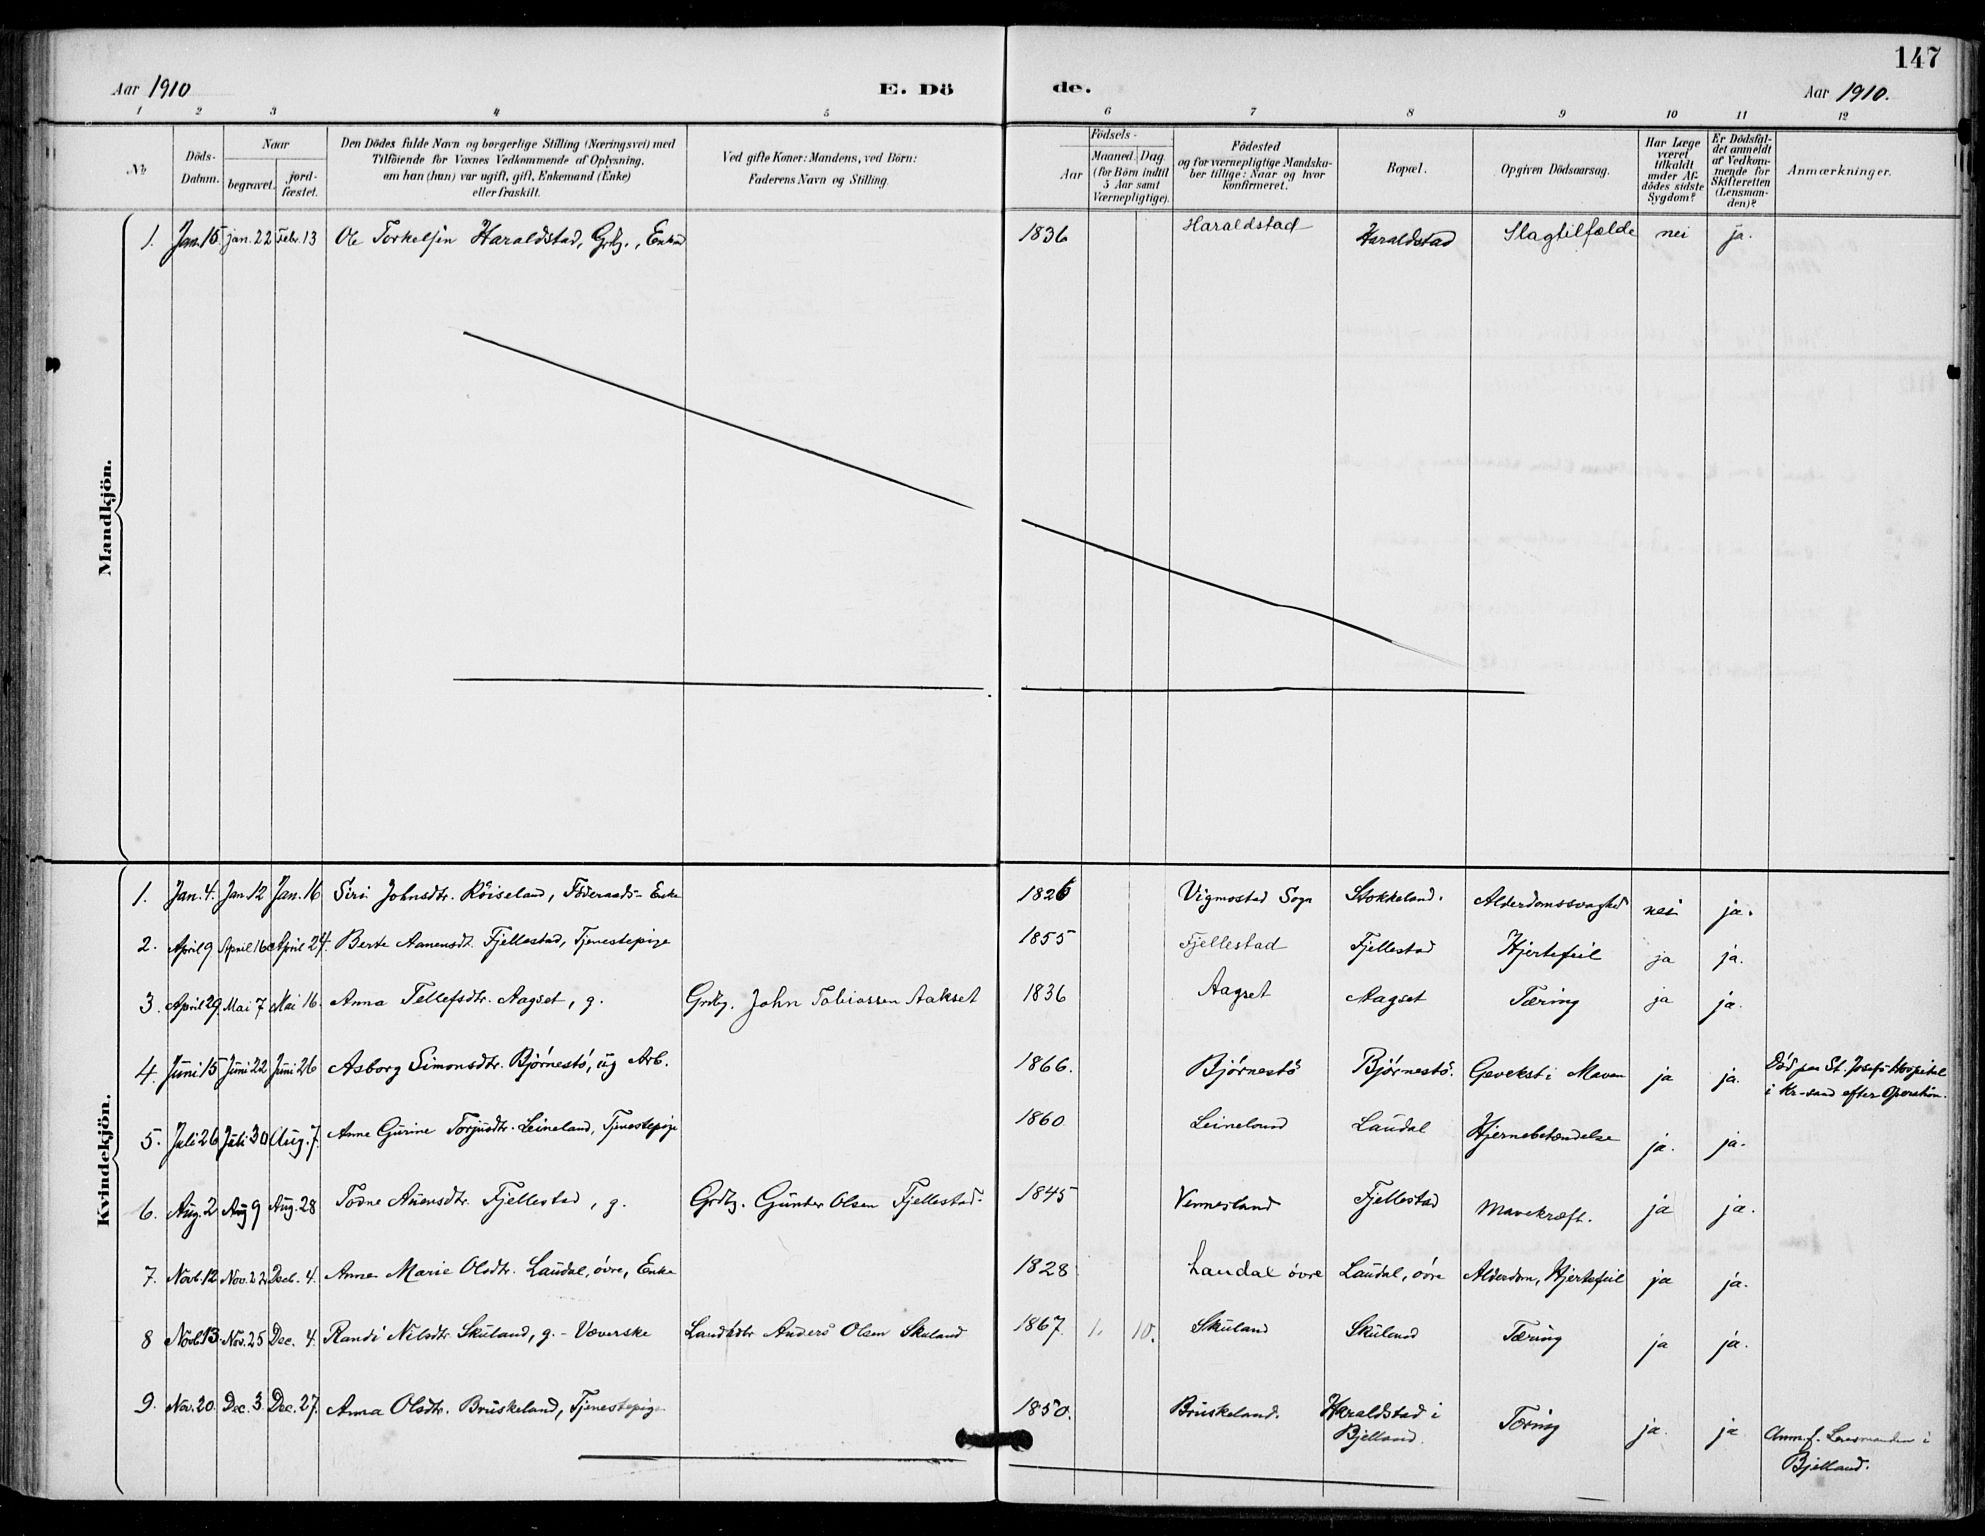 147
Aar 1910 E. Dö de. Aar 1910.
1 2 3 4 5 6 7 8 9 10 11 12
No
Döds-
Datum.
Naar
begravet.
jord-
fæstet.
Den Dödes fulde Navn og borgerlige Stilling (Næringsvei) med
Tilföiende for Voxnes Vedkommende af Oplysning,
om han (hun) var ugift, gift, Enkemand (Enke)
eller fraskilt.
Ved gifte Koner: Mandens, ved Börn:
Faderens Navn og Stilling.
Födsels-
Aar
Maaned. Dag
(for Börn indtil
5 Aar samt
Værnepligtige).
Födested
og for værnepligtige Mandska-
ber tillige: Naar og hvor
konfirmeret.
Bopæl.
Opgiven Dödsaarsag.
Har Læge
været
tilkaldt
under Af-
dödes sidste
Sygdom?
Er Dödsfal-
det anmeldt
af Vedkom-
mende for
Skifteretten
(Lensman-
den)?
Anmærkninger.
Mandkjön.
1. Jan. 15 jan. 22 Febr. 13 Ole Torkelsen Haraldstad, Grbg., Enkm 1836 Haraldstad Haraldstad Slagtilfælde nei ja.
Kvindekjön.
1. Jan. 4. Jan 12 Jan. 16 Siri Johnsdtr. Röiseland, Föderaads-Enke 1826 Vigmostad Sogn Stokkeland. Alderdomssvaghed nei ja.
2. April 9 April 16 April 24. Berte Aanensdt. Fjellestad, Tjenestepige 1855 Fjellestad Fjellestad Hjertefeil ja ja.
3. April 29. Mai 7 Mai 16. Anna Tellefsdtr. Aagset, g. Grdbg. John Tobiassen Aakset 1836 Aagset Aagset Tæring ja ja.
4. Juni 15 Juni 22 Juni 26 Asborg Simonsdtr. Bjørnestö, ug Arb. 1866. Bjørnestö Bjørnestö. Gevekst i Maven ja ja. Död paa St. Josefs Hospital
i Kr-sand efter Operation.
5. Juli 26 Juli 30 Aug. 7. Anne Gurine Torjusdtr. Leineland, Tjenestepige 1860 Leineland Laudal Hjernebetændelse ja. ja.
6. Aug. 2 Aug 9 Aug. 28 Todne Aanensdtr. Fjellestad, g. Grdbg. Gunder Olsen Fjellestad. 1845 Vennesland Fjellestad Mavekræft. ja ja.
7. Novb. 12 Nov. 22 Decb. 4. Anne Marie Olsdtr. Laudal, övre, Enke 1828 Laudal övre Laudal, övre Alderdom, Hjertefeil ja ja.
8 Novb. 13. Nov. 25 Dec. 4. Randi Nilsdtr. Skuland, g. - Væverske Anders Olsen Skuland 1867. 1. 10. Skuland Skuland Tæring ja ja.
9. Nov. 20. Dec. 3. Dec. 27. Anna Olsdtr. Bruskeland, Tjenestepige 1850. Bruskeland. Haraldstad i
Bjelland. Tæring ja. ja Anm. f. Lensmanden i
Bjelland.